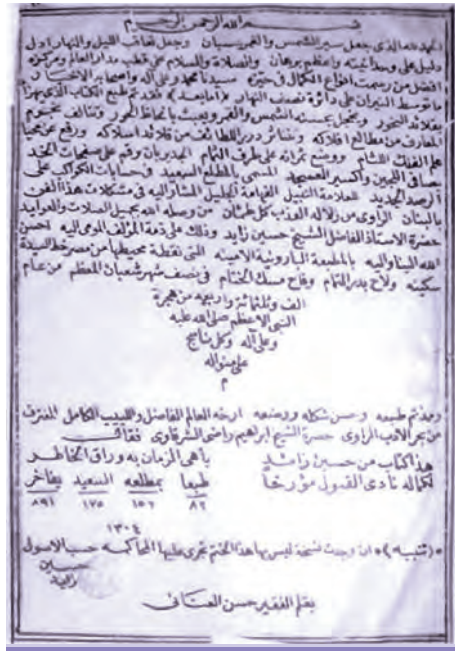 بسم الله الرحمن الرحيم
الحمد لله الذى جعل سير الشمس والقمر بحسبان وجعل تعاقب الليل والنهار ادل
دليل على وحدانيته واعظم برهان والصلاة والسلام على قطب مدار العالم ومركزه
افضل من رسمت انواع الكمال فى حيزه سيدنا محمد وعلى آله واصحابه الاخيار
ما توسط النيران على دائرة نصف النهار (أما بعد) فقد تم طبع الكتاب الذى يهزأ
بقلائد النحور ويخجل بحسنه الشمس والقمر ويعبث بالحاظ الحور وتتألف نجوم
المعارف من مطالع افلاكه وتتناثر درر اللطائف من قلائد اسلاكه ورفع عن محيا
علم الفلك اللثام ووضع ثمراته على طرف الثمام
المسمى بالمطلع السعيد فى حسابات الكواكب على
الرصد الجديد للعلامة النبيل الفهامة الجليل المشار اليه فى مشكلات هذا الفن
بالبنان الراوى من زلاله العذب كل ظمئان من وصله الله بجميل الصلات والعوايد
حضرة الاستاذ الفاضل الشيخ حسين زايد وذلك على ذمة المؤلف المومى اليه احسن
الله الينا واليه بالمطبعة البارونية التى نقطة محيطها من مصر خط السيدة
سكينه ولاح بدر التمام وفاح مسك الختام فى نصف شهر شعبان المعظم من عام
الف وثلثمائة واربعه من هجرة
النبى الاعظم صلى الله عليه
وعلى آله وكل ناسج
على منواله
م
ومذ تم طبعه وحسن شكله ووضعه ارخه العالم الفاضل واللبيب الكامل المغترف
من بحر الادب الراوى حضرة الشيخ ابراهيم راضى الشرقاوى فقال
هذا كتاب من حسين زائد باهى الزمان به وراق الخاطر
لكماله نادى القبول مؤرخا طبعا بمطلعه السعيد يفاخر
٨٢ ١٥٦ ١٧٥ ٨٩١
١٣٠٤
(تنبيه) ان وجدت نسخة ليس بها هذا الختم تجرى عليها المحاكمه حسب الاصول
حسين
زايد
بقلم الفقير حسن العنانى